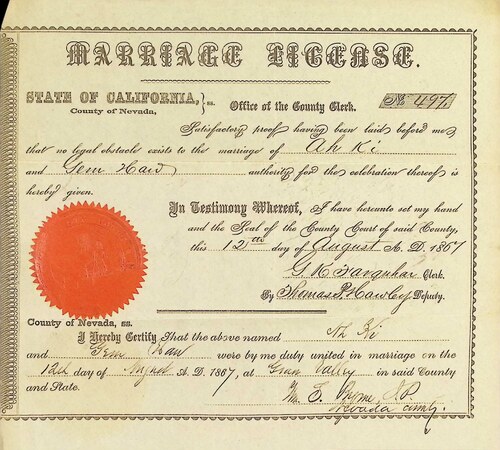 MARRIAGE LICENSE.
STATE OF CALIFORNIA, } ss.
County of Nevada,
Office of the County Clerk.
No 497.
Satisfactory proof having been laid before me
that no legal obstacle exists to the marriage of Ah Ki
and Gem Haw authority for the celebration thereof is
hereby given.
In Testimony Whereof, I have hereunto set my hand
and the Seal of the County Court of said County,
this 12th day of August A. D. 1867
G. K. Farquhar Clerk.
By Thomas P. Hawley Deputy.
County of Nevada, ss.
I Hereby Certify That the above named Ah Ki
and Gem Haw were by me duly united in marriage on the
12th day of August A. D. 1867, at Grass Valley in said County
and State.
Wm. E. Byrne J. P.
Nevada County.